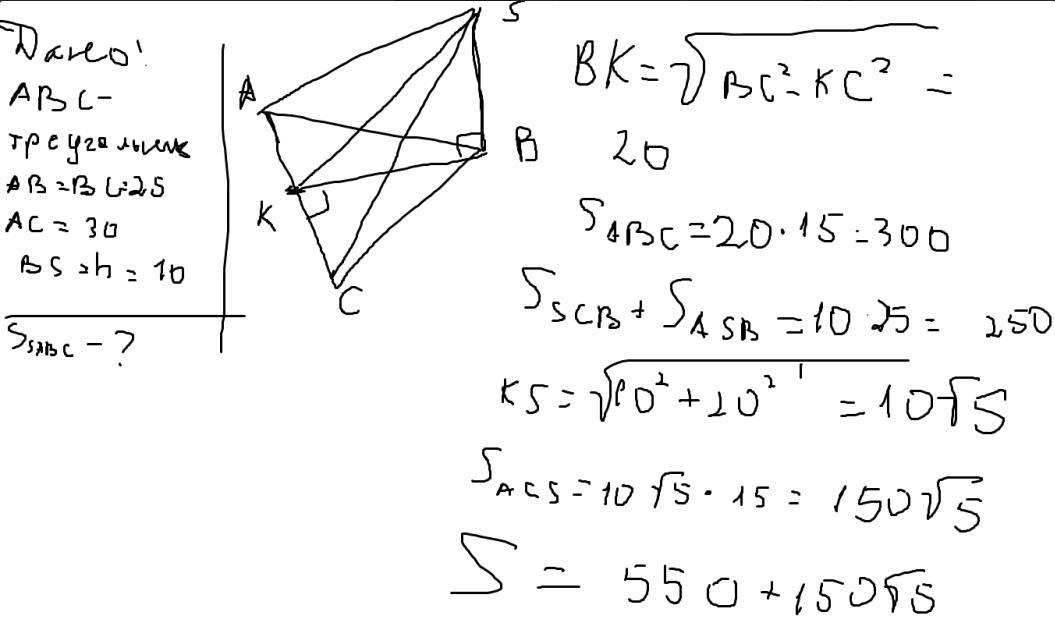 Дано:
ABC-
треугольник
AB=BC=25
AC = 30
BS=h=10
S_SABC - ?
S
A
B
K
C
BK=√(BC²-KC²) =
20
S_ABC=20·15=300
S_SCB + S_ASB =10·25= 250
KS=√(10²+20²) =10√5
S_ACS=10√5·15=150√5
S = 550+150√5